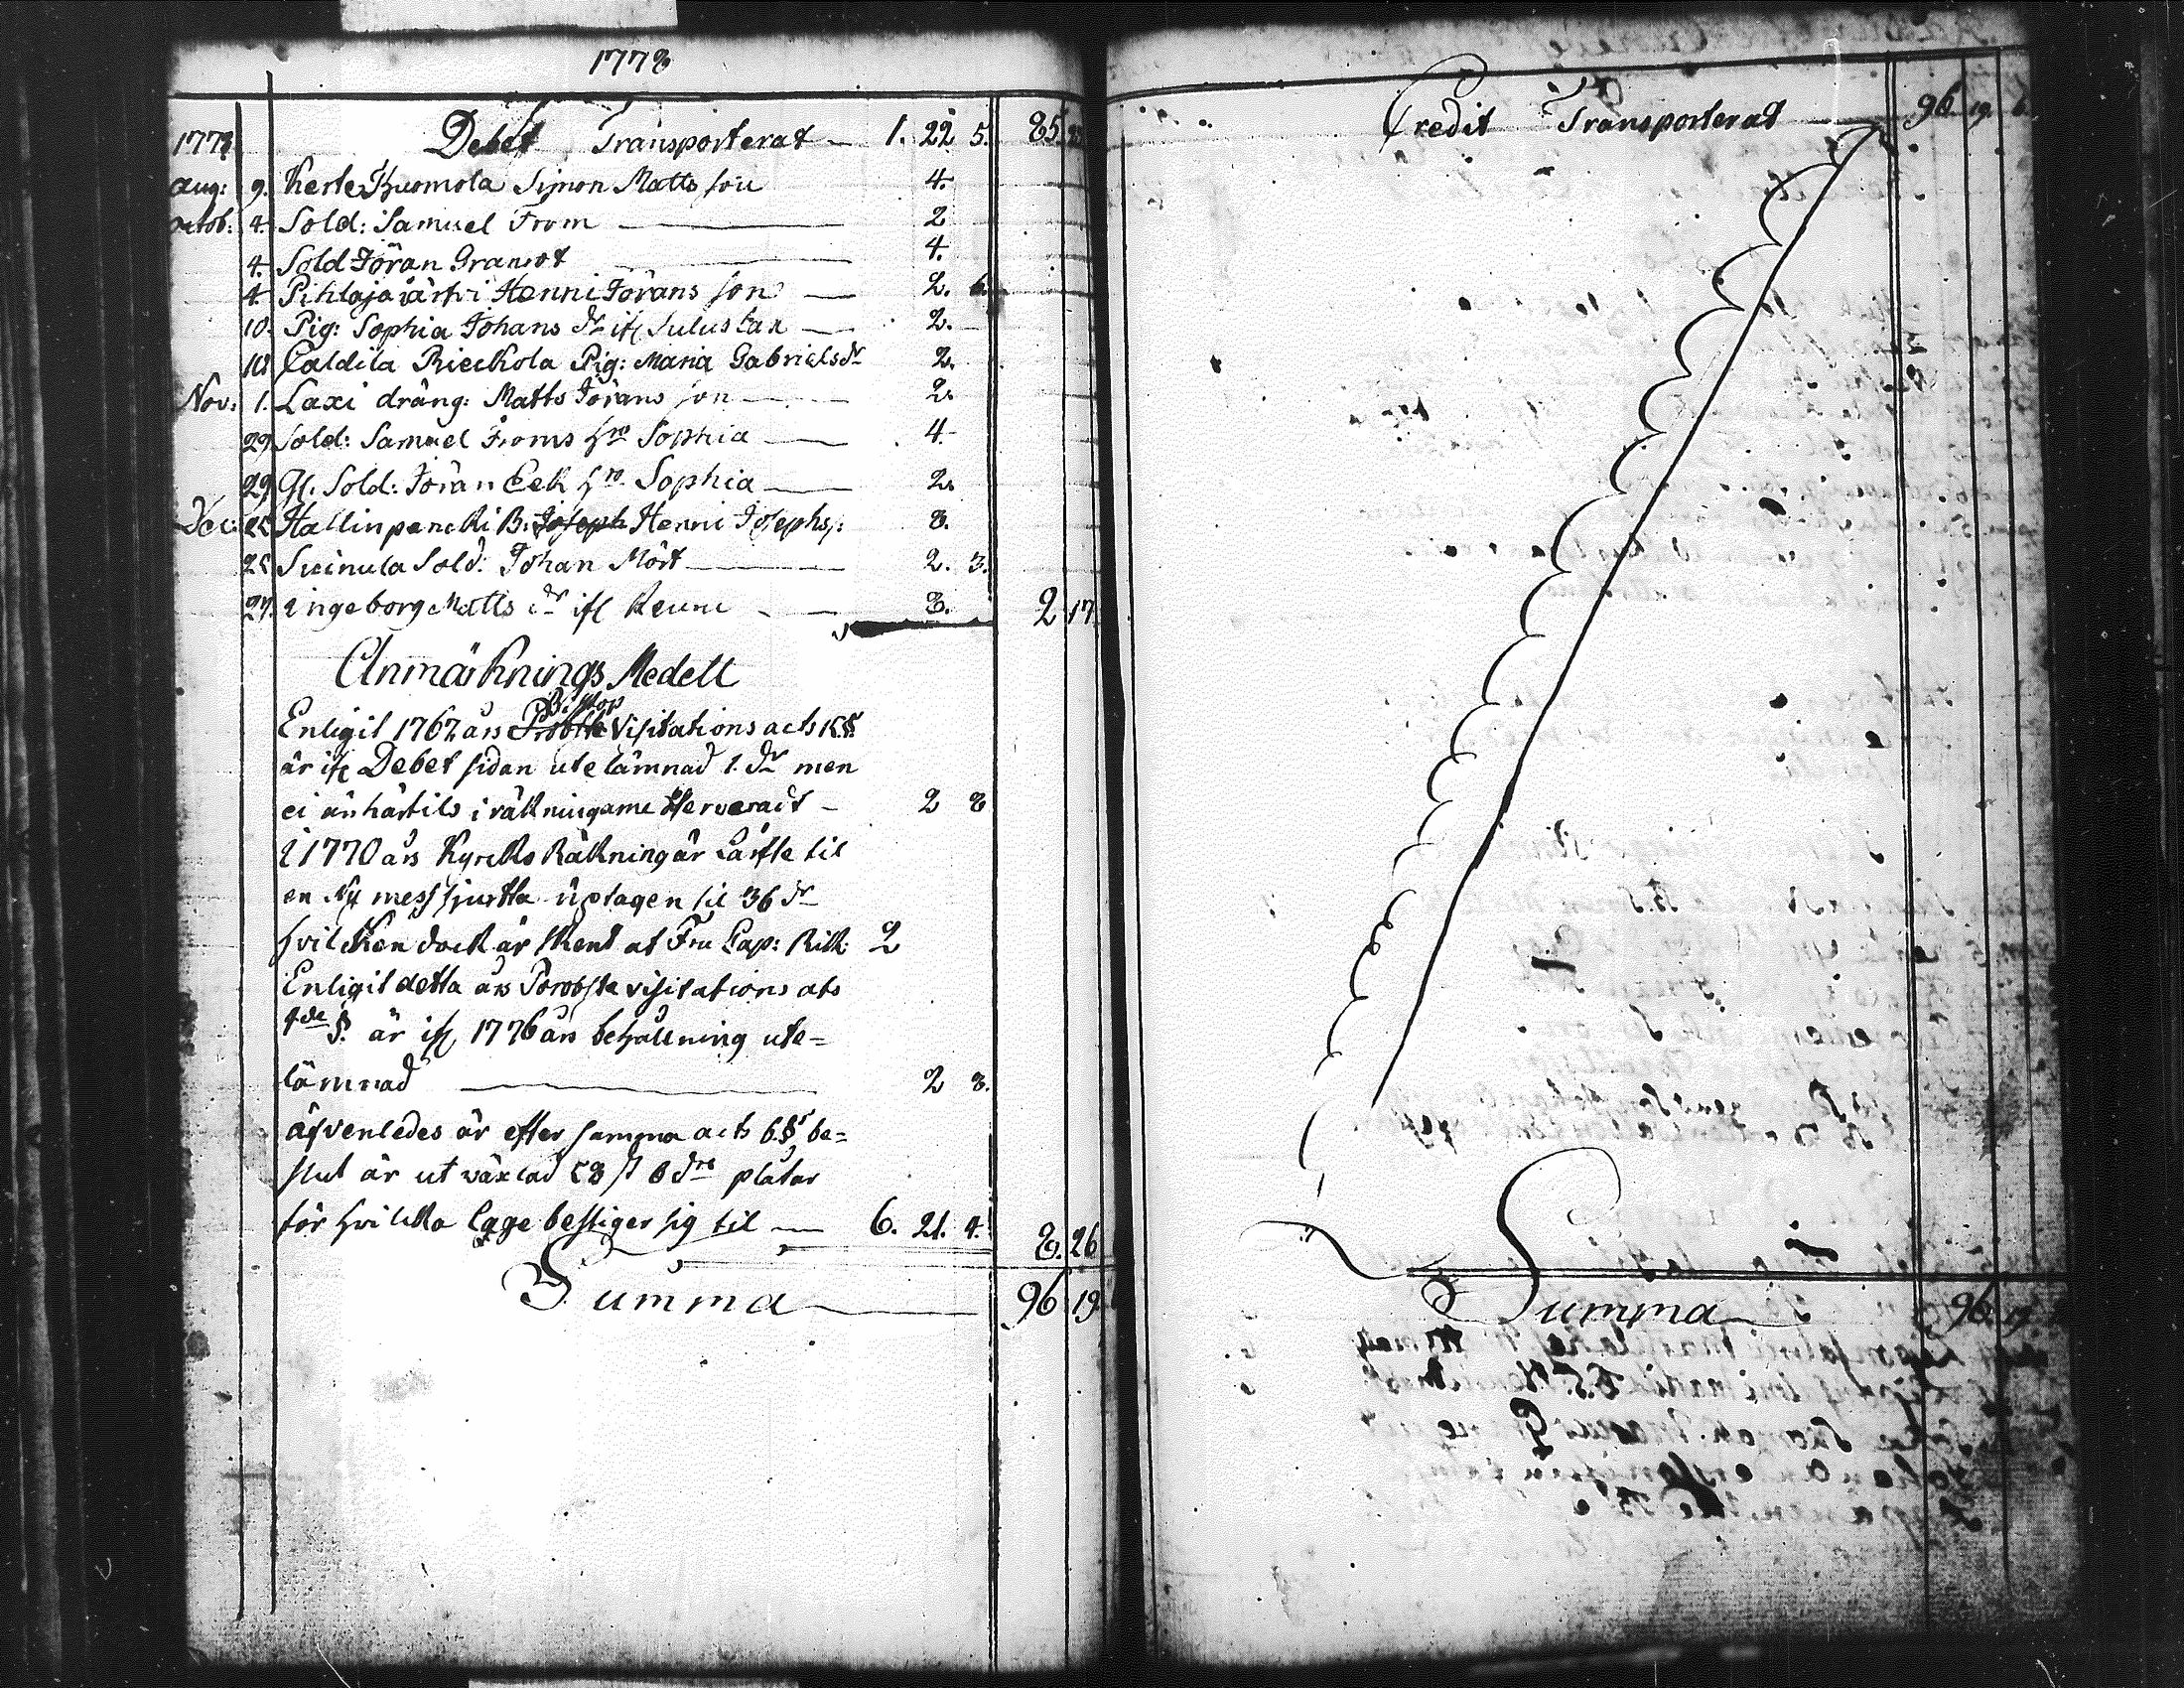 1778
1778 Debet Transporterat 1. 22 5. 85.
Aug: 9. Kerle Kuomola Simon Matts son 4.
Octob: 4. Sold: Samuel From 2
4. Sold Jöran Granrot 4.
4. Pihlajajärfvi Henni Jörans son 2. 6.
10. Pig: Sophia Johans dr ifr Sulus 2.
18 Caldila Rieckola Pig: Maria Gabriels dr 2.
Nov: 1. Laxi dräng: Matts Jörans son 2.
29 Sold: Samuel Froms hro Sophia 4.
29 Gl. Sold: Jöran Eek hro Sophia 2.
Dec: 25 Hallinpencki B: Joseph Henni Josephs: 8.
25 Suinula Sold: Johan Mört 2. 3.
27. Ingeborg Matts dr ifr Keuru 8. 2 17.
Anmärknings Medell
Biskop
Enligit 1767 års Probste Visitations acts 15 §
är ifr Debet sidan utelämnad 1. dr men
ei än härtils i räkningarne 2 8
I 1770 års Kyrcko Räkning är Lärfte til
en Ny mess skjurtta uptagen til 36 dr
hvilcken dock är skent af Fru Cap: Rik: 2
Enligit detta års Probste visitations acts
4de §. är ifr 1776 års behållning ute=
lämnad 2 8.
äfvenledes är efter samma acts 6. § be=
slut är utwäxlad 58 st 6 dre plåtar
för hvilcka lage bestiger sig til 6. 21. 4. 8. 26
Summa 96 19.
Credit Transporterat 96. 19. 6.
Summa 96. 19